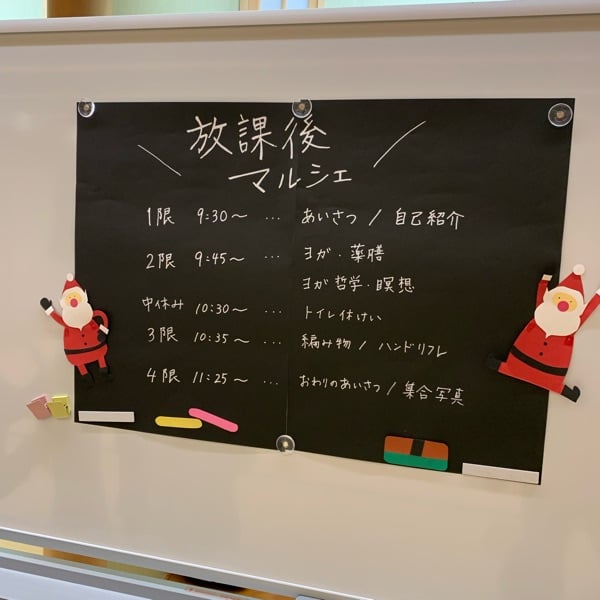 放課後
マルシェ
1限 9:30〜 ... あいさつ / 自己紹介
2限 9:45〜 ... ヨガ・薬膳
ヨガ哲学・瞑想
中休み 10:30〜 ... トイレ休けい
3限 10:35〜 ... 編み物 / ハンドリフレ
4限 11:25〜 ... おわりのあいさつ / 集合写真